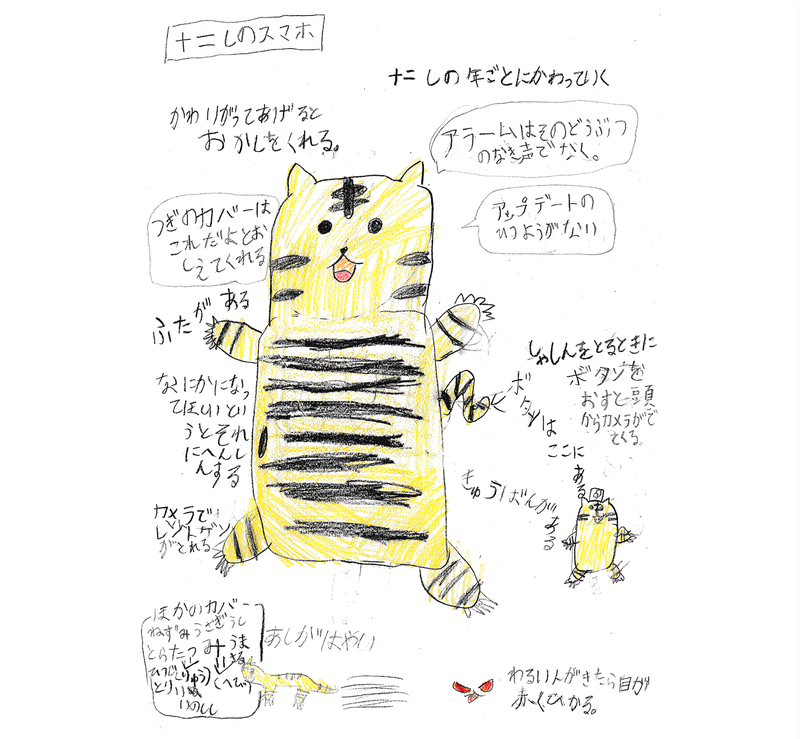 十二しのスマホ
十二しの年ごとにかわっていく
かわいがってあげると
おかしをくれる。
アラームはそのどうぶつ
のなき声でなく。
つぎのカバーは
これだよとお
しえてくれる
アップデートの
ひつようがない
ふたがある
しゃしんをとるときに
ボタンを
おすと頭
からカメラがで
てくる
ボタンはここにある
なにかになっ
てほしいとい
うとそれ
にへんし
んする
きゅうばんがある
カメラで
レントゲン
がとれる
ほかのカバー
ねずみうさぎうし
とらたつみうま
ひつじ(りゅう)(へび)さる
とりいぬ
いのしし
あしがはやい
わるい人がきたら目が
赤くひかる。